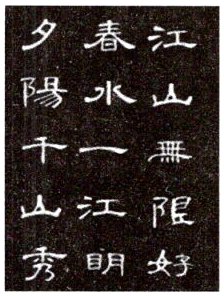 江山無限好
春水一江明
夕陽千山秀